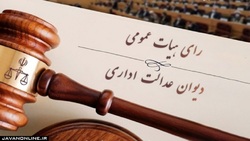 رای هیات عمومی
دیوان عدالت اداری
WWW.JAVANONLINE.IR